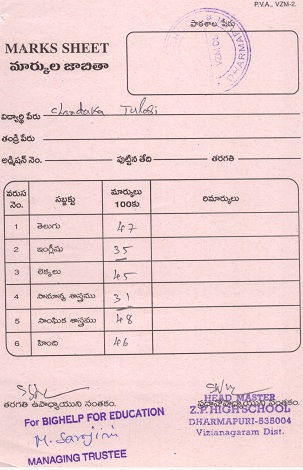 P.V.A., VZM-2.
పాఠశాల పేరు
MARKS SHEET
మార్కుల జాబితా
విద్యార్థి పేరు Chandaka Tulasi
తండ్రి పేరు
అడ్మిషన్ నెం. పుట్టిన తేది తరగతి
వరుస నెం. సబ్జక్టు మార్కులు 100కు రిమార్కులు
1 తెలుగు 47
2 ఇంగ్లీషు 35
3 లెక్కలు 45
4 సామాన్య శాస్త్రము 31
5 సాంఘిక శాస్త్రము 48
6 హింది 46
తరగతి ఉపాధ్యాయుని సంతకం. ప్రధానోపాధ్యాయుని సంతకం.
For BIGHELP FOR EDUCATION
M. Sarojini
MANAGING TRUSTEE
HEAD MASTER
Z.P. HIGH SCHOOL
DHARMAPURI-535004
Vizianagaram Dist.